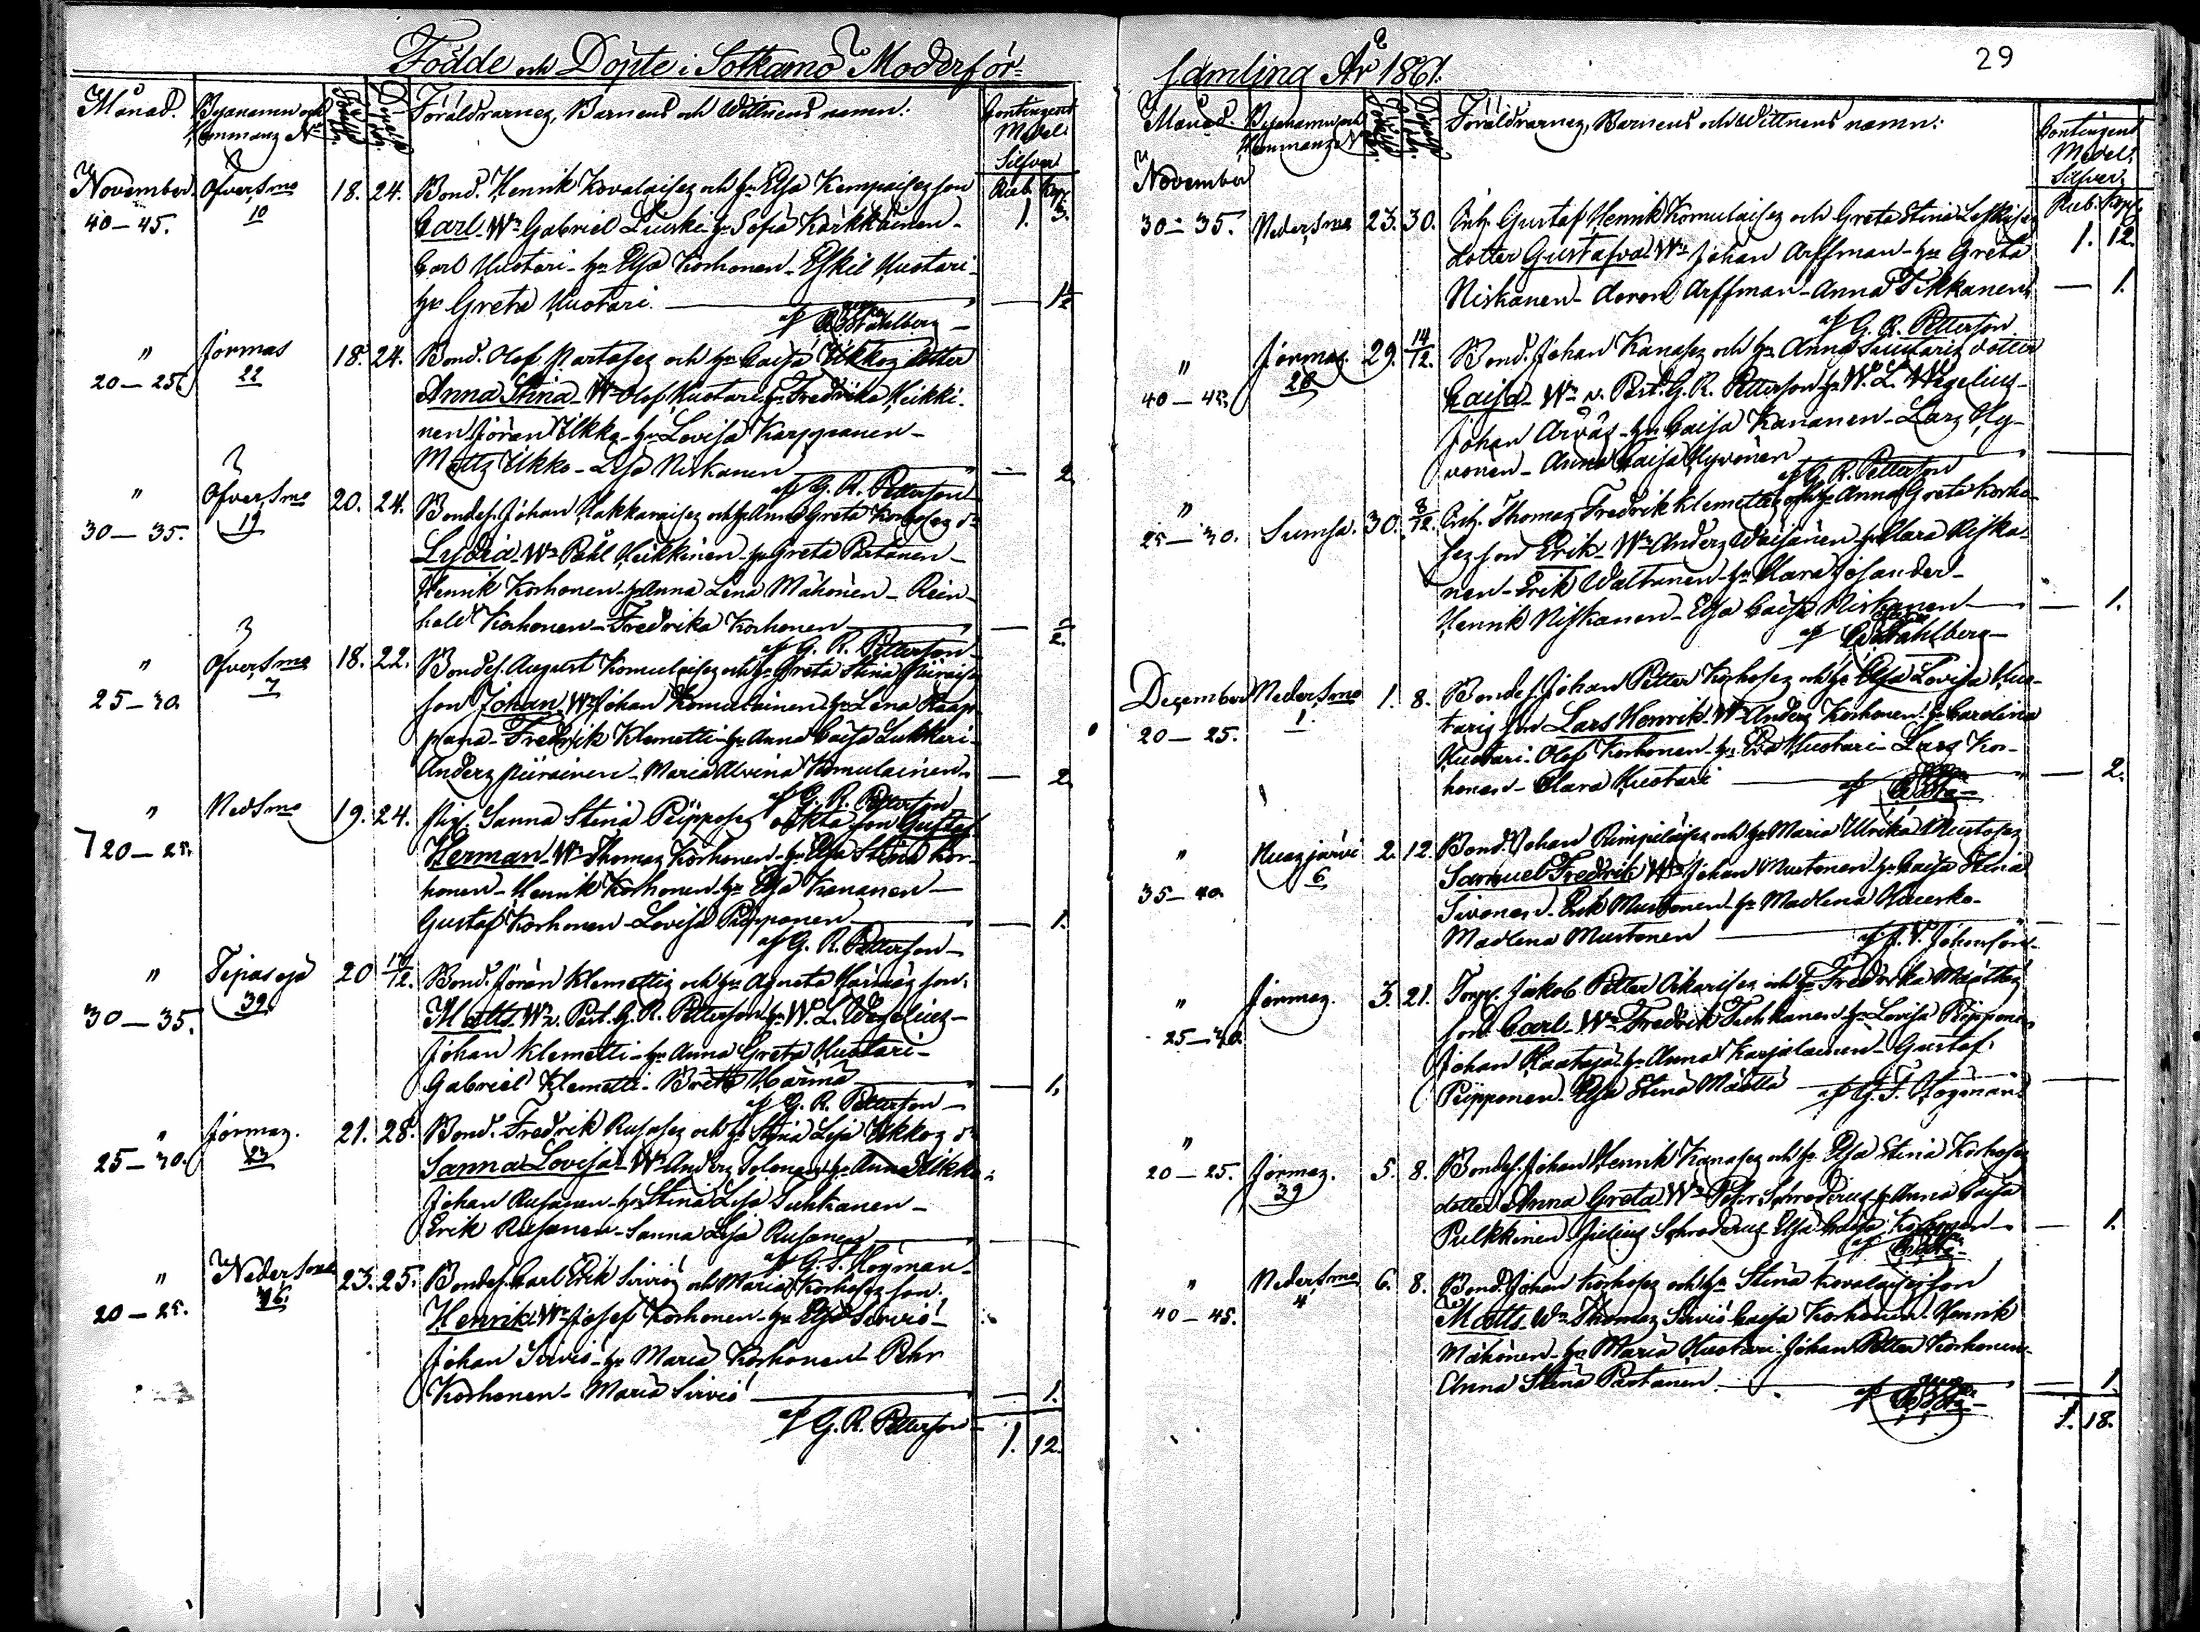 Födde och Döpte i Sotkamo Moderför=
Månad. Byanamn och Hemmanz No Födelse Döpelse Föräldrarnez, Barnens och Wittnens namn: Contingent Medel Silfver
Rub. Kop.
November Öfversmo 18. 24. Bond. Henrik Kovalaisez och h. Elsa Kempaisez son 1. 3.
40-45. 10 Carl. Wn Gabriel Liuski hu Sofia Karkkäinen-
Carl Huotari- hu Elsa Korhonen- Eskil Huotari-
hu Greta Huotari
af Ståhlberg
" Jormas 18. 24. Bond. Olof Partasez och hu Caisa Ukkoz dotter
20-25 22 Anna Stina- Wn Olof Huotari hu Fredrika Heikki-
nen Jöran Ukko- hu Lovisa Karppanen-
Matts Ukko- Lisa Niskanen - 2
af G. R. Petterson
" Öfversmo 20. 24. Bondes. Johan Hakkaraisez och h. Anna Greta Korhosez dr
30-35. 19 Lydia- Wn Påhl Heikkinen- hu Greta Partanen-
Henrik Korhonen- hu Anna Lena Mähönen- Rein-
hold Korhonen- Fredrika Korhonen
af G. R. Petterson
" Öfversmo 18. 22. Bondes. August Komulaisez och h. Greta Stina Piiraisez
25-30. 7 son Johan. Wn Johan Komulainen hu Lena Raap-
pana- Fredrik Klemetti- hu Anna Caisa Lukkari-
Anderz Piirainen- Maria Alvina Komulainen - 2
af G. R. Petterson
" Nedsmo 19. 24. Pig. Sanna Stina Piipposez oäkta son Gustaf
20-25. Herman- Wn Thomaz Korhonen- hu Elsa Stina Kor-
honen- Henrik Korhonen- hu Elsa Kananen-
Gustaf Korhonen- Lovisa Piipponen - 1.
af G. R. Petterson-
" Tipasoja 20 Bond. Jöran Klemettiz och hu Agneta Härmäz son.
30-35. 39. Matts. Wn v. Past. G. R. Petterson hu W. L. Wegelius-
Johan Klemetti- hu Anna Greta Huotari-
Gabriel Klemetti- Britta Härmä - 1.
af G. R. Petterson-
" Jormaz. 21. 28. Bond. Fredrik Rusasez och h. Stina Lisa Ukkoz dr
25-30. 23 Sanna Lovisa- Wn Anderz Tolonen hu Anna Ukko-
Johan Rusanen- hu Stina Lisa Tuhkanen-
Erik Rusanen- Sanna Lisa Rusanen
af G. F. Högman-
" Nedersmo 23. 25. Bondes. Carl Erik Sirviöz och Maria Korhosez son.
20-25. 46. Henrik Wn Josef Korhonen- hu Elsa Sirviö-
Johan Sirviö- hu Maria Korhonen Pehr
Korhonen- Maria Sirviö - 1.
af G. R. Petterson- 1. 12.
29
samling År 1861.
Månad. Byanamn och Hemmanz No Födelse Döpelse Föräldrarnez, Barnens och Wittnens namn: Contingent Medel. Silfver.
Rub. Kop.
November
30-35. Nedersmo 23. 30. Inh. Gustaf Henrik Komulaisez och Greta Stina 1. 12.
dotter Gustafva. Wn Johan Arffman- hu Greta
Niskanen- Aron Arffman- Anna Tikkanen - 1.
af G. R. Petterson
" Jormaz. 29. 14/12. Bond. Johan Kanasez och hu Anna Huotariz dotter
40-45. 28 Caisa- Wn v. Past. G. R. Petterson hu W. L. Wegelius-
Johan Arvås- hu Caisa Kananen- Larz Hy-
vönen- Anna Caisa Hyvönen
af G. R. Petterson
" Sumsa. 30. 8/12. Inh. Thomaz Fredrik Klemettiz och h. Anna Greta Korho-
25-30. sez son Erik- Wn Anderz Väisänen hu Clara Niska-
nen- Erik Waltanen- hu Clara Josander-
Henrik Niskanen- Elsa Caisa Niskanen - 1.
af Ståhlberg-
December Nedersmo 1. 8. Bondes. Johan Petter Korhosez och h. Elsa Lovisa Huo-
20-25. 1 tariz son Lars Henrik. Wn Anderz Korhonen. hu Carolina
Huotari. Olof Korhonen- hu Eva Huotari- Lars Kor-
honen- Clara Huotari - 2.
" Nuasjärvi 2. 12. Bond. Johan Rimpiläisez och h. Maria Ulrika Mustosez
35-40. 6 Samuel Fredrik Wn Johan Mustonen hu Caisa Stina
Sivonen- Erik Mustonen- hu Madlena
Madlena Mustonen
af J. V. Johansson-
" Jormaz. 3. 21. Torp. Jakob Petter Oikarisez och h. Fredrika Määttäz
25-30. son. Carl- Wn Fredrik Tuhkanen- hu Lovisa Piipponen
Johan Raatoja- hu Anna Karjalainen- Gustaf
Piipponen- Elsa Stina Määttä
af G. F. Högman
" Jormaz. 5. 8. Bondes. Johan Henrik Kanasez och h. Elsa Stina Korhosez
20-25. 39 dotter Anna Greta. Wn Pehr Schroderus- hu Anna Caisa
Pulkkinen Schroderus Elsa Caisa Korhonen- - 1.
" Nedersmo 6. 8. Bond. Johan Korhosez och hu Stina Kovalaisez son
40-45. 4 Matts. Wn Thomaz Sirviö Caisa Korhonen. Henrik
Mähönen- hu Maria Huotari- Johan Petter Korhonen-
Anna Stina Partanen - 1.
1. 18.